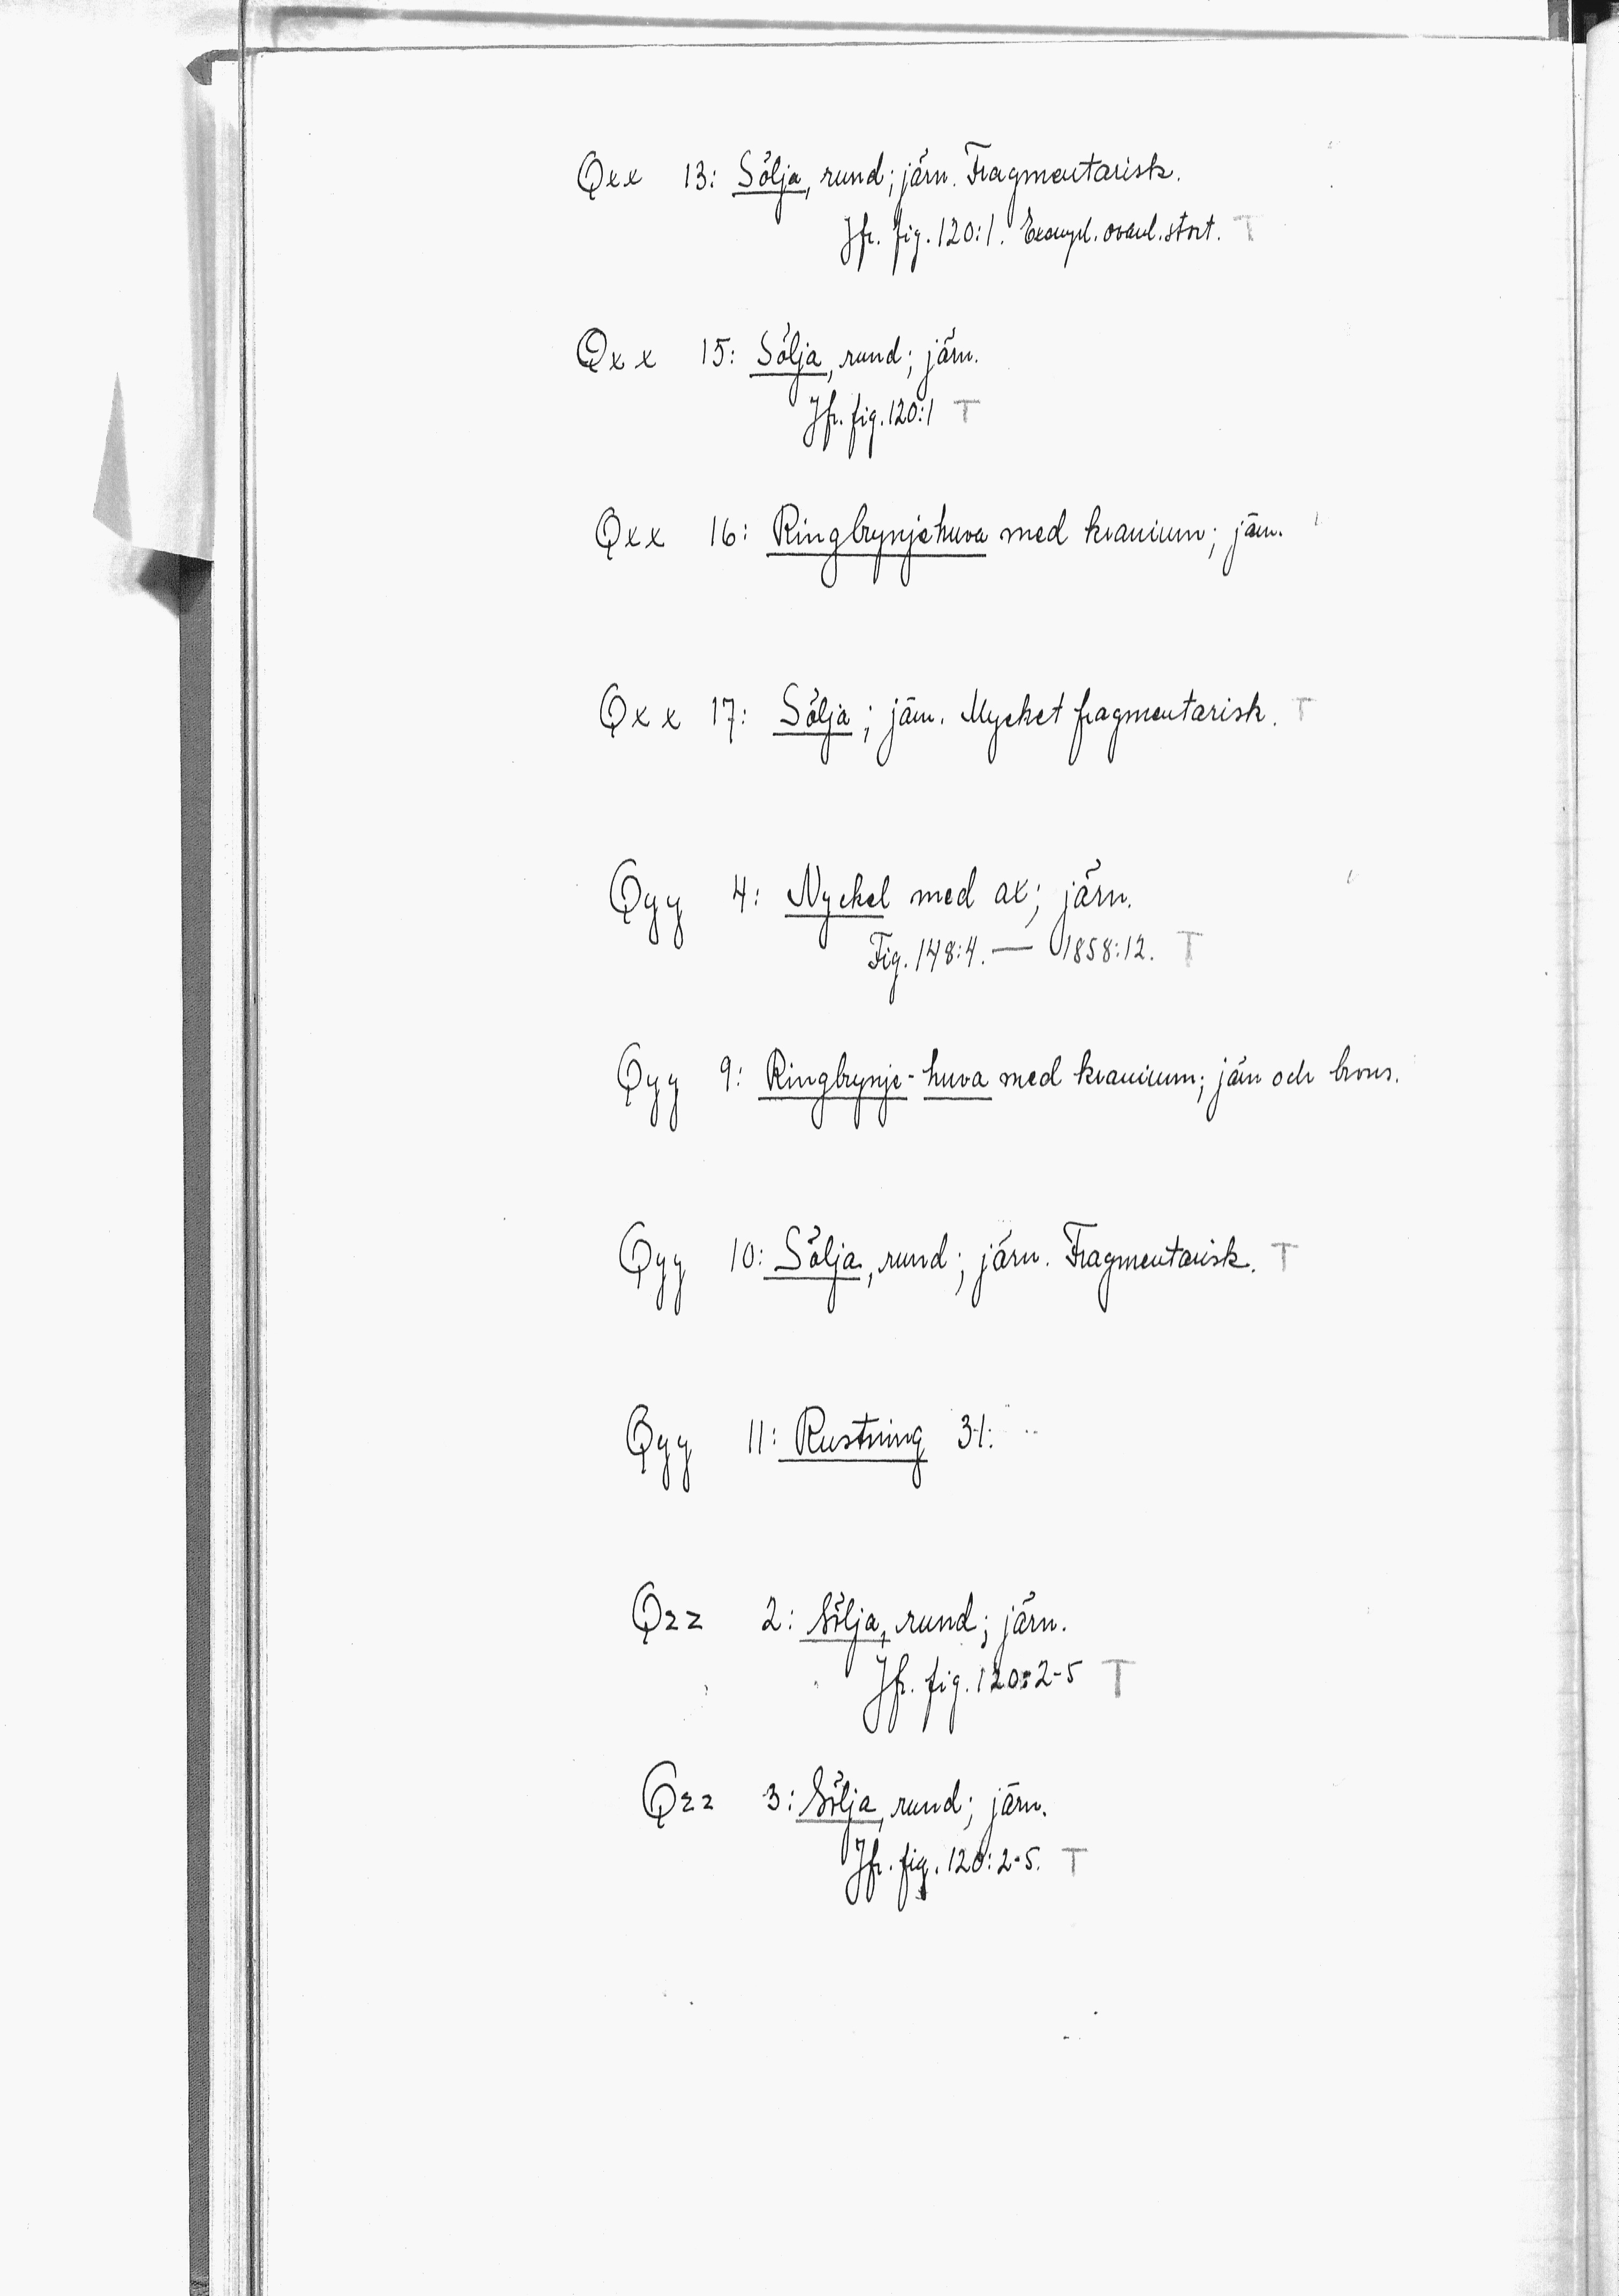 Qxx 13: Sölja, rund; järn. Fragmentarisk.
Jfr. fig. 120:1. Exempl. ovanl. stort. T
Qxx 15: Sölja, rund; järn.
Jfr. fig. 120:1 T
Qxx 16: Ringbrynjehuva med kranium; järn.
Qxx 17: Sölja; järn. Mycket fragmentarisk. T
Qyy 4: Nyckel med ax; järn.
Fig. 148:4. — 1858:12. T
Qyy 9: Ringbrynje-huva med kranium; järn och brons.
Qyy 10: Sölja, rund; järn. Fragmentarisk. T
Qyy 11: Rustning 31:
Qzz 2: Sölja, rund; järn.
Jfr. fig. 120:2-5 T
Qzz 3: Sölja, rund; järn.
Jfr. fig. 120:2-5. T